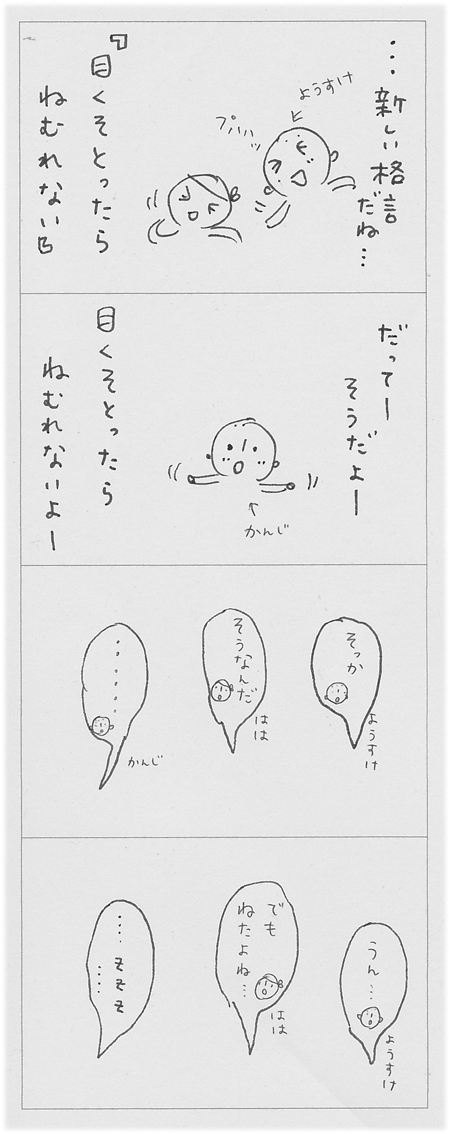 …新しい格言
だね…
ようすけ
プハハッ
『目くそとったら
ねむれない』
だってー
そうだよー
かんじ
目くそとったら
ねむれないよー
そっか
ようすけ
そうなんだ
はは
……
かんじ
うん…
ようすけ
でも
ねたよね…
はは
…そそそ
…